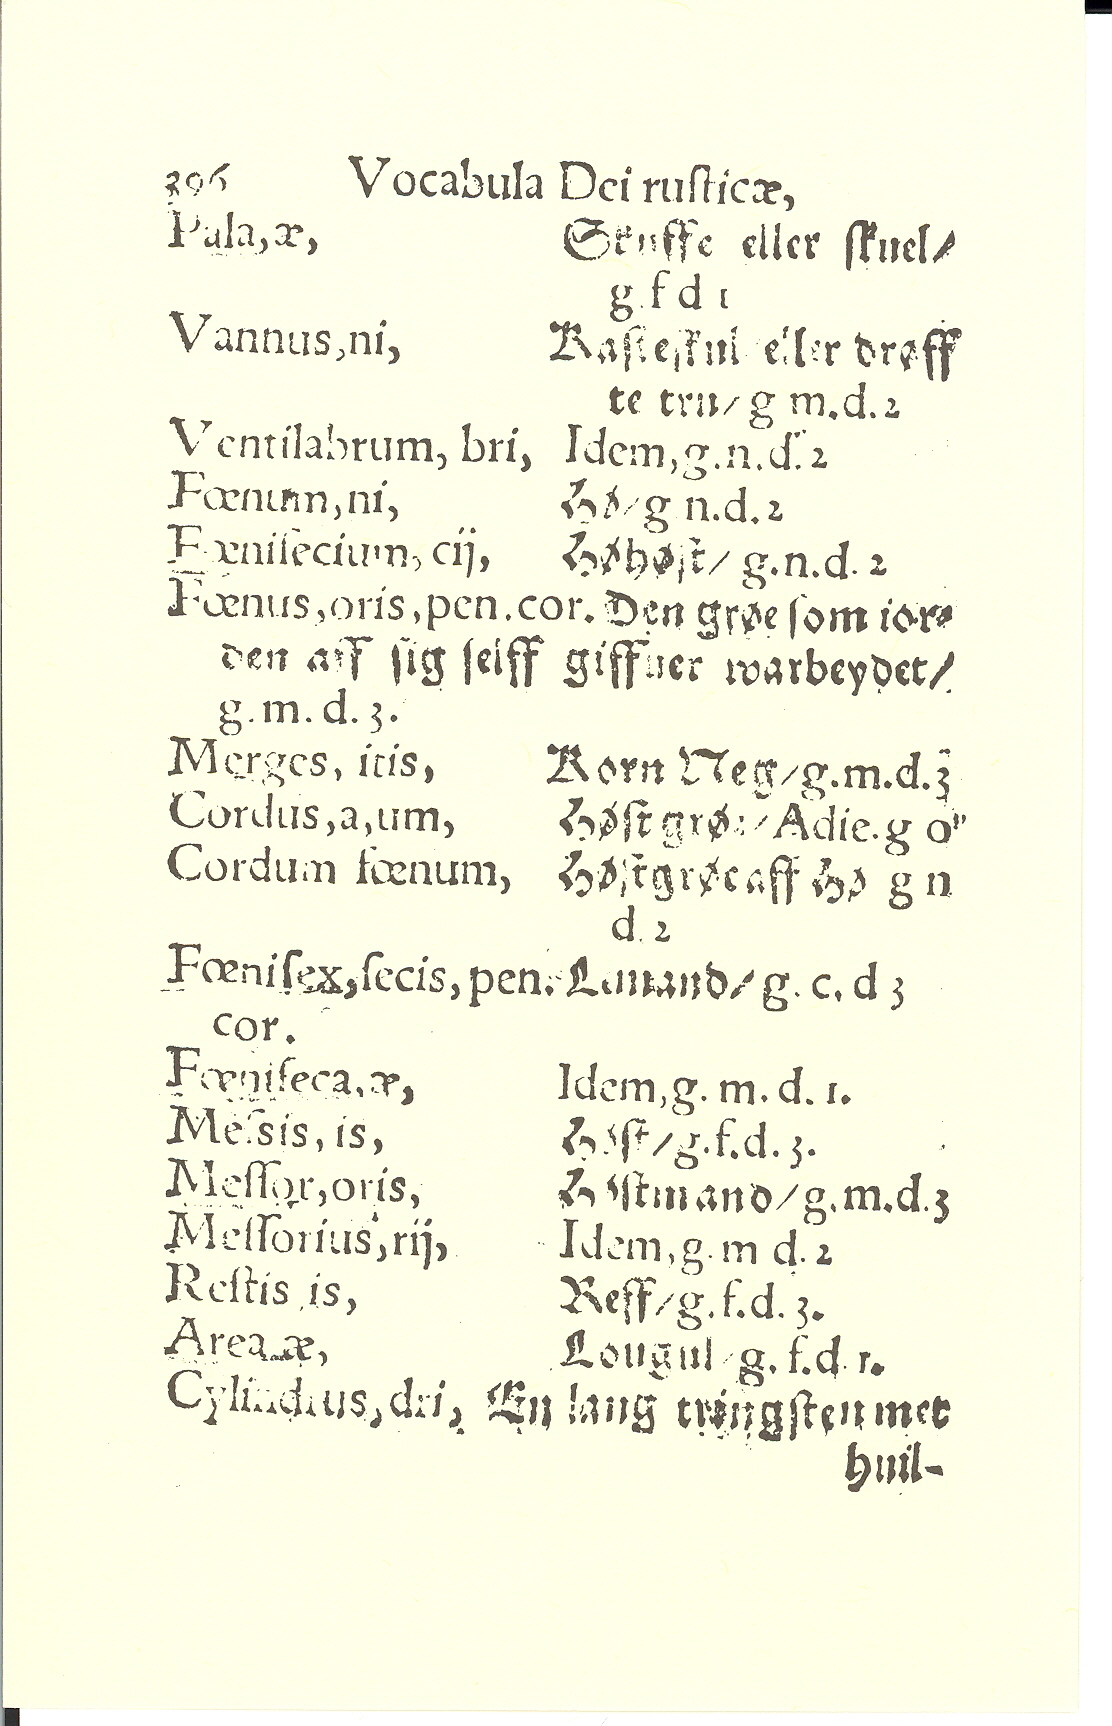 396 Vocabula Dei rusticæ,
Pala, æ, Skuffe eller skuel/
g. f d 1
Vannus, ni, Kasteskul eller drøff
te tru/ g m. d. 2
Ventilabrum, bri, Idem, g. n. d. 2
Fœnum, ni, Hø/ g n. d. 2
Fœnisecium, cij, Høhøst/ g. n. d. 2
Fœnus, oris, pen. cor. Den grøe som ior⸗
den aff sig selff giffuer warbeydet/
g. m. d. 3.
Merges, itis, Korn Neg/ g. m. d. 3
Cordus, a, um, Høstgrøe/ Adie. g o
Cordum fœnum, Høstgrøe aff Hø g n
d. 2
Fœnisex, secis, pen. Lauand/ g. c. d 3
cor.
Fœniseca, æ, Idem, g. m. d. 1.
Messis, is, Høst/ g. f. d. 3.
Messor, oris, Høstmand/ g. m. d. 3
Messorius, rij, Idem, g. m d. 2
Restis, is, Reff/ g. f. d. 3.
Area, æ, Lougul/ g. f. d. 1.
Cylindrus, dri, En lang tringsten met
huil-